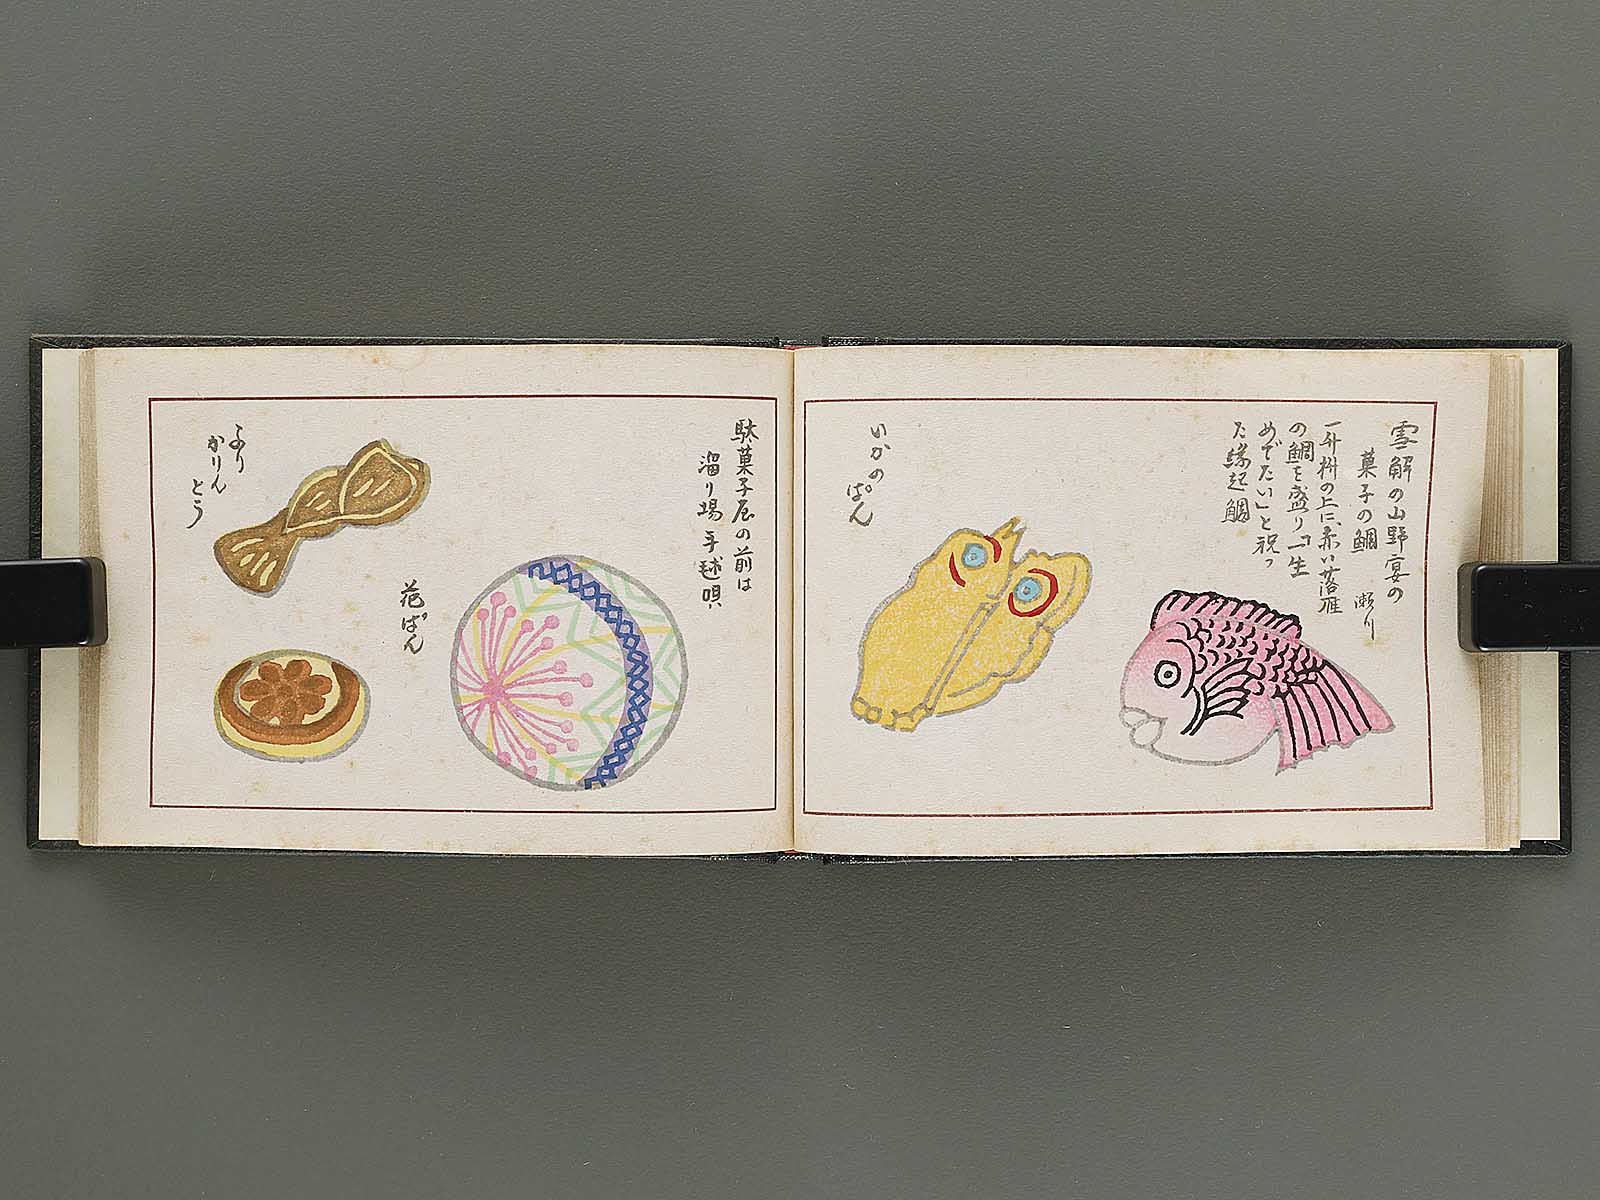 雪解の山野宴の
菓子の鯛
一升桝の上に、赤い落雁
の鯛を盛り「一生
めでたい」と祝っ
た縁起鯛
いかの
ぱん
駄菓子屋の前は
溜り場 手毬唄
花ぱん
かりん
とう